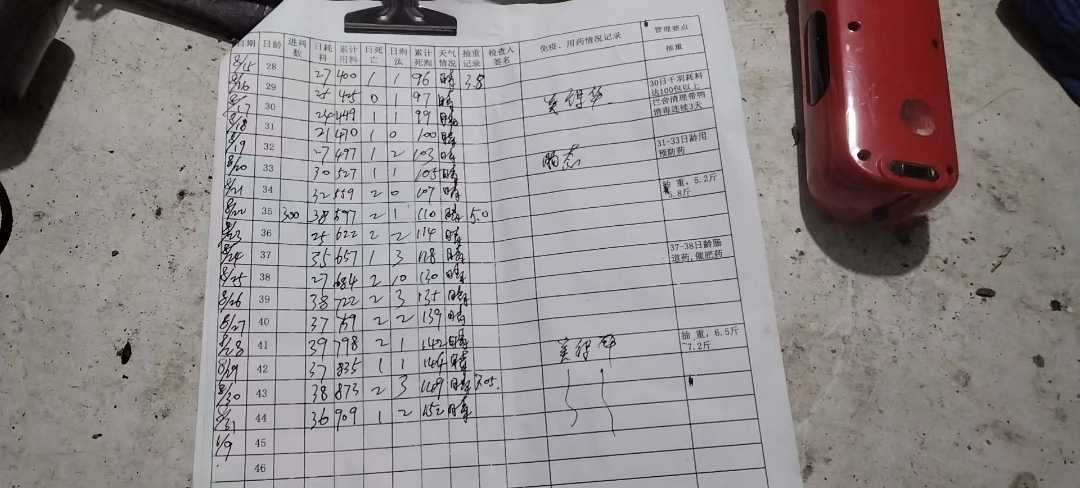 日期 日龄 进鸡数 日耗料 累计用料 日死亡 日淘汰 累计死淘 天气情况 抽重记录 检查人签名 免疫、用药情况记录 管理要点
抽重
8/15 28 27 400 1 1 96 晴 3.8
29 25 425 0 1 97 晴
30日千羽耗料达100包以上
已舍清理带鸭消毒连续3天
30 24 449 1 1 99 晴
8/18 31 21 470 1 0 100 晴
8/19 32 27 497 1 2 103 晴
31-33日龄用预防药
8/20 33 30 527 1 1 105 晴
8/21 34 32 559 2 0 107 晴
抽 重, 5.2斤
5.8斤
8/22 35 300 38 597 2 1 110 晴 5.0
8/23 36 25 622 2 2 114 晴
8/24 37 35 657 1 3 118 晴
37-38日龄肠道药,催肥药
8/25 38 27 684 2 10 130 晴
8/26 39 38 722 2 3 135 晴
8/27 40 37 759 2 2 139 晴
8/28 41 39 798 2 1 142 晴
抽 重, 6.5斤
7.2斤
8/29 42 37 835 1 1 144 晴
8/30 43 38 873 2 3 149 晴 7.05
8/31 44 36 909 1 2 152 晴
1/9 45
46